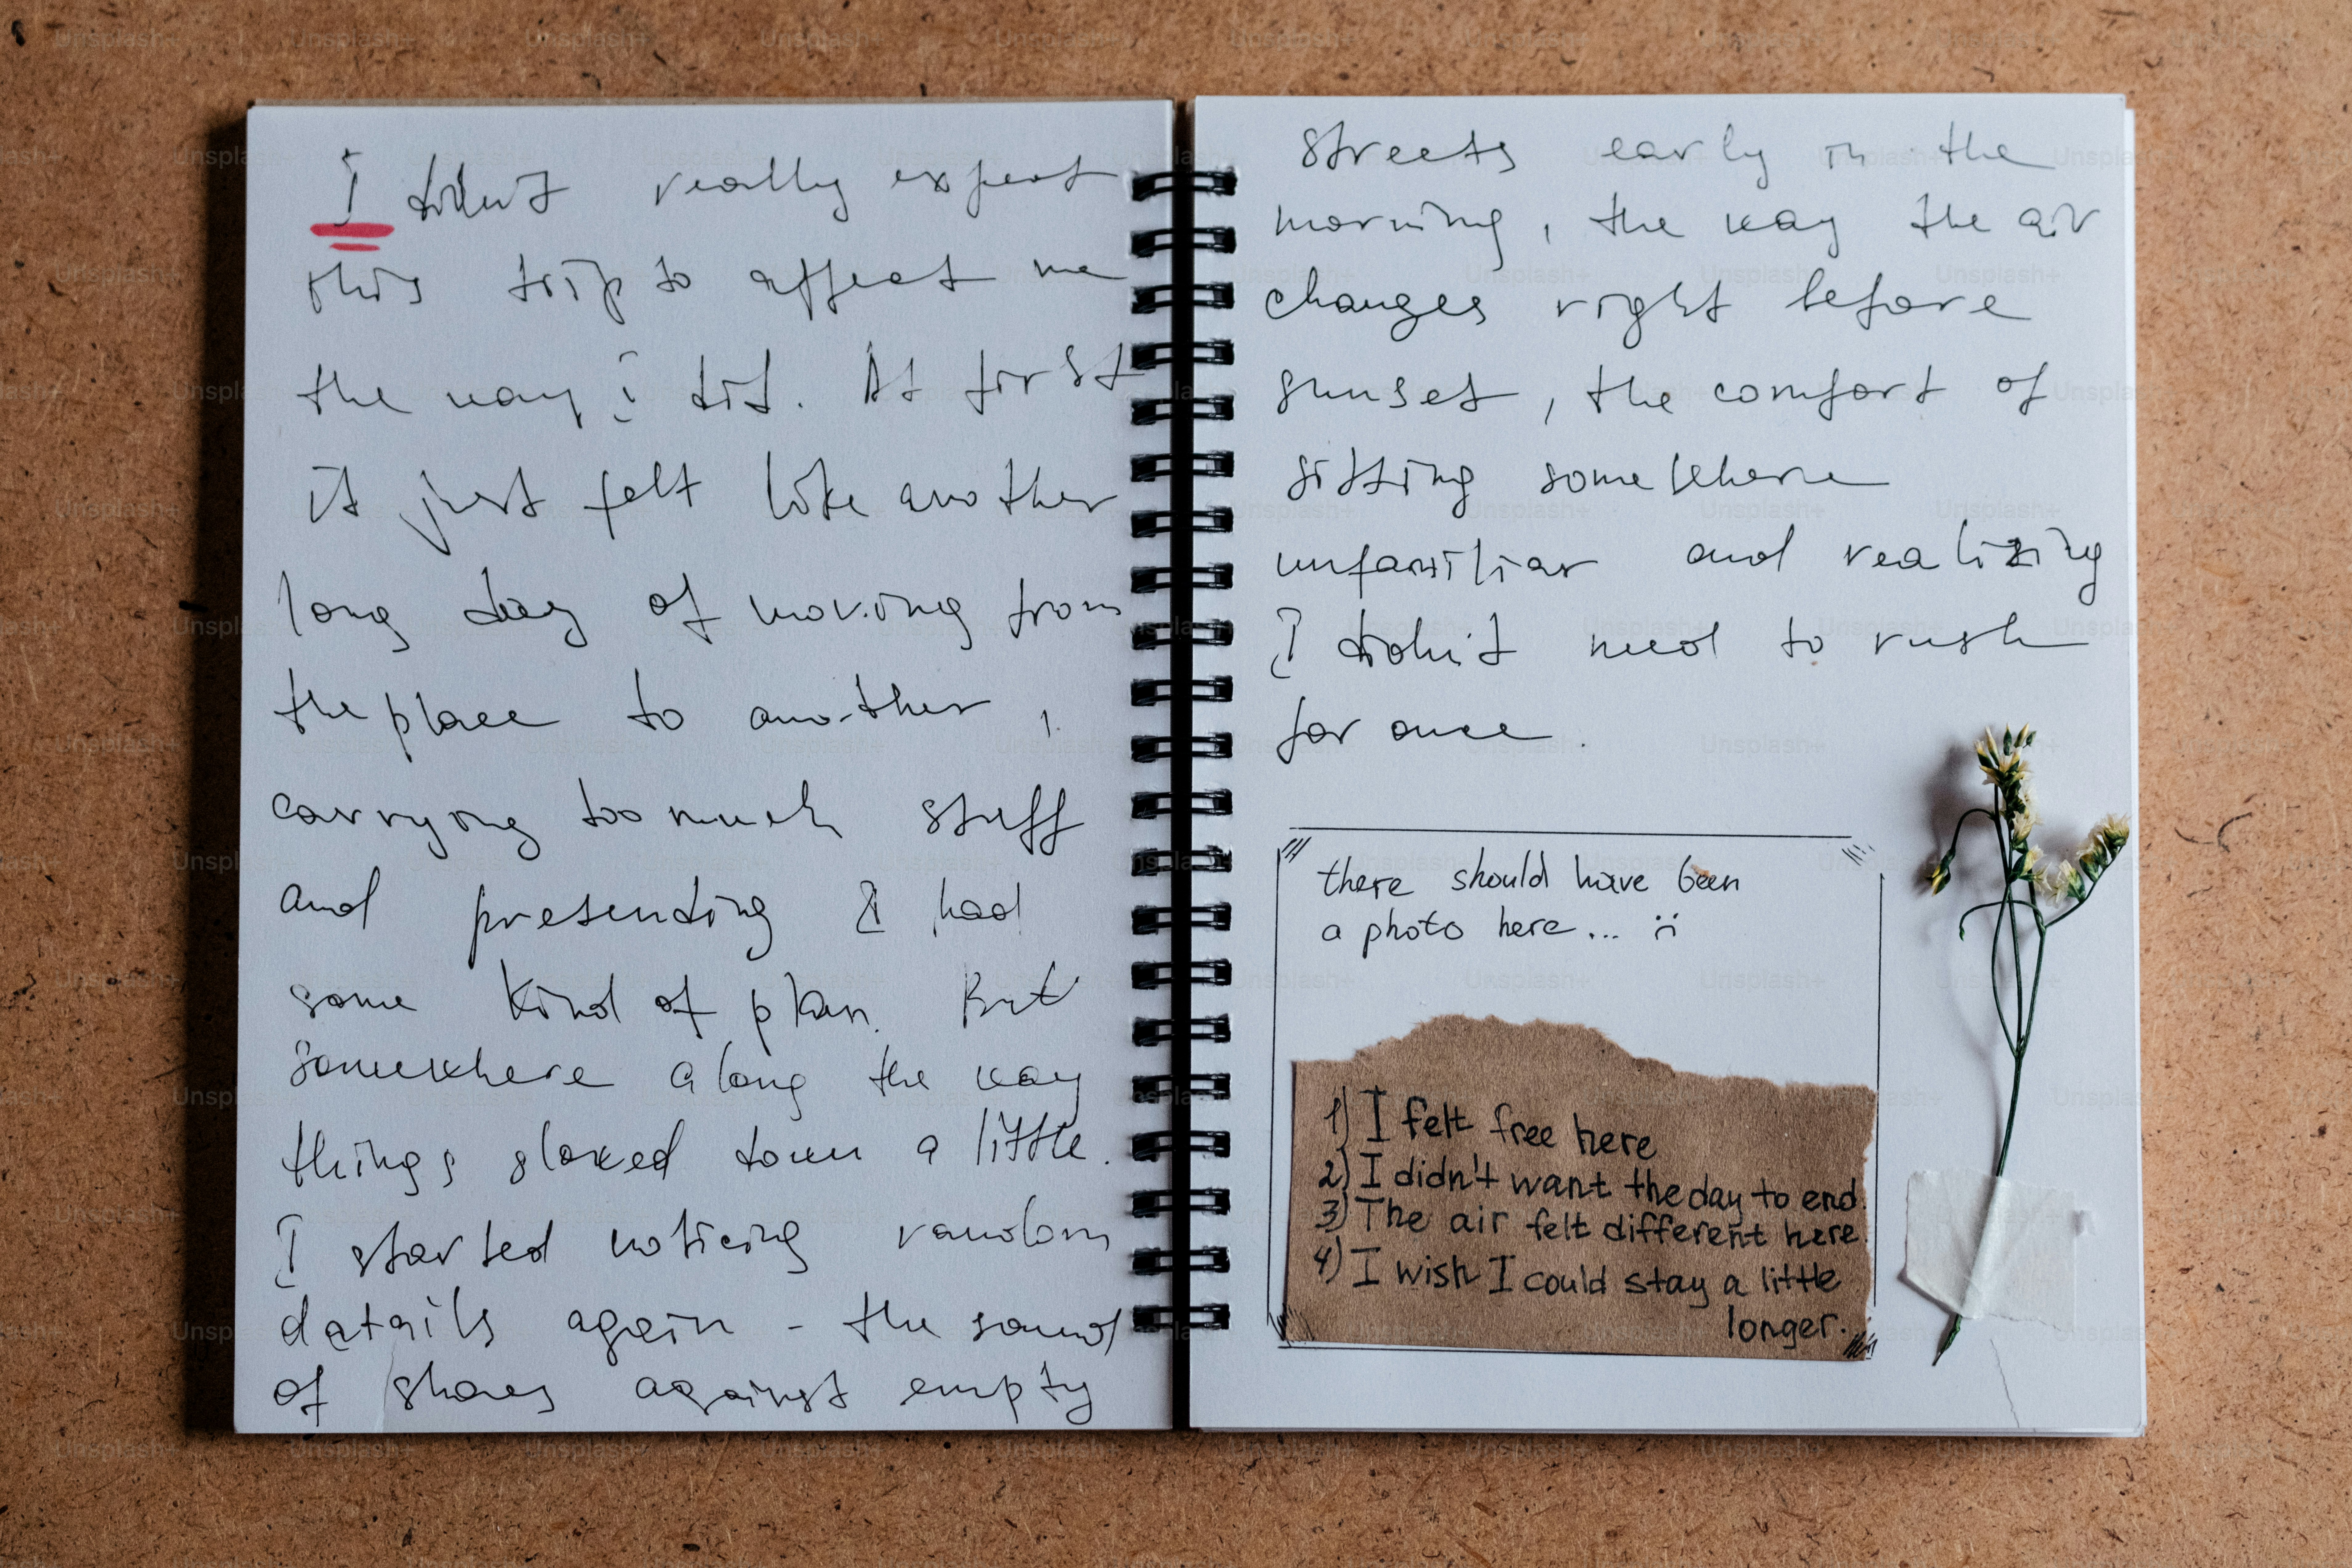 I didn't really expect
this trip to affect me
the way i did. At first
it just felt like another
long day of moving from
the place to another,
carrying too much stuff
and presending I had
some kind of plan. But
somewhere along the way
things slowed down a little.
I started noticing random
details again - the sound
of shoes against empty
streets early in the
morning, the way the air
changes right before
sunset, the comfort of
sitting somewhere
unfamiliar and realizing
I didn't need to rush
for once.
there should have been
a photo here... :(
1) I felt free here
2) I didn't want the day to end.
3) The air felt different here.
4) I wish I could stay a little
longer.
Unsplash+